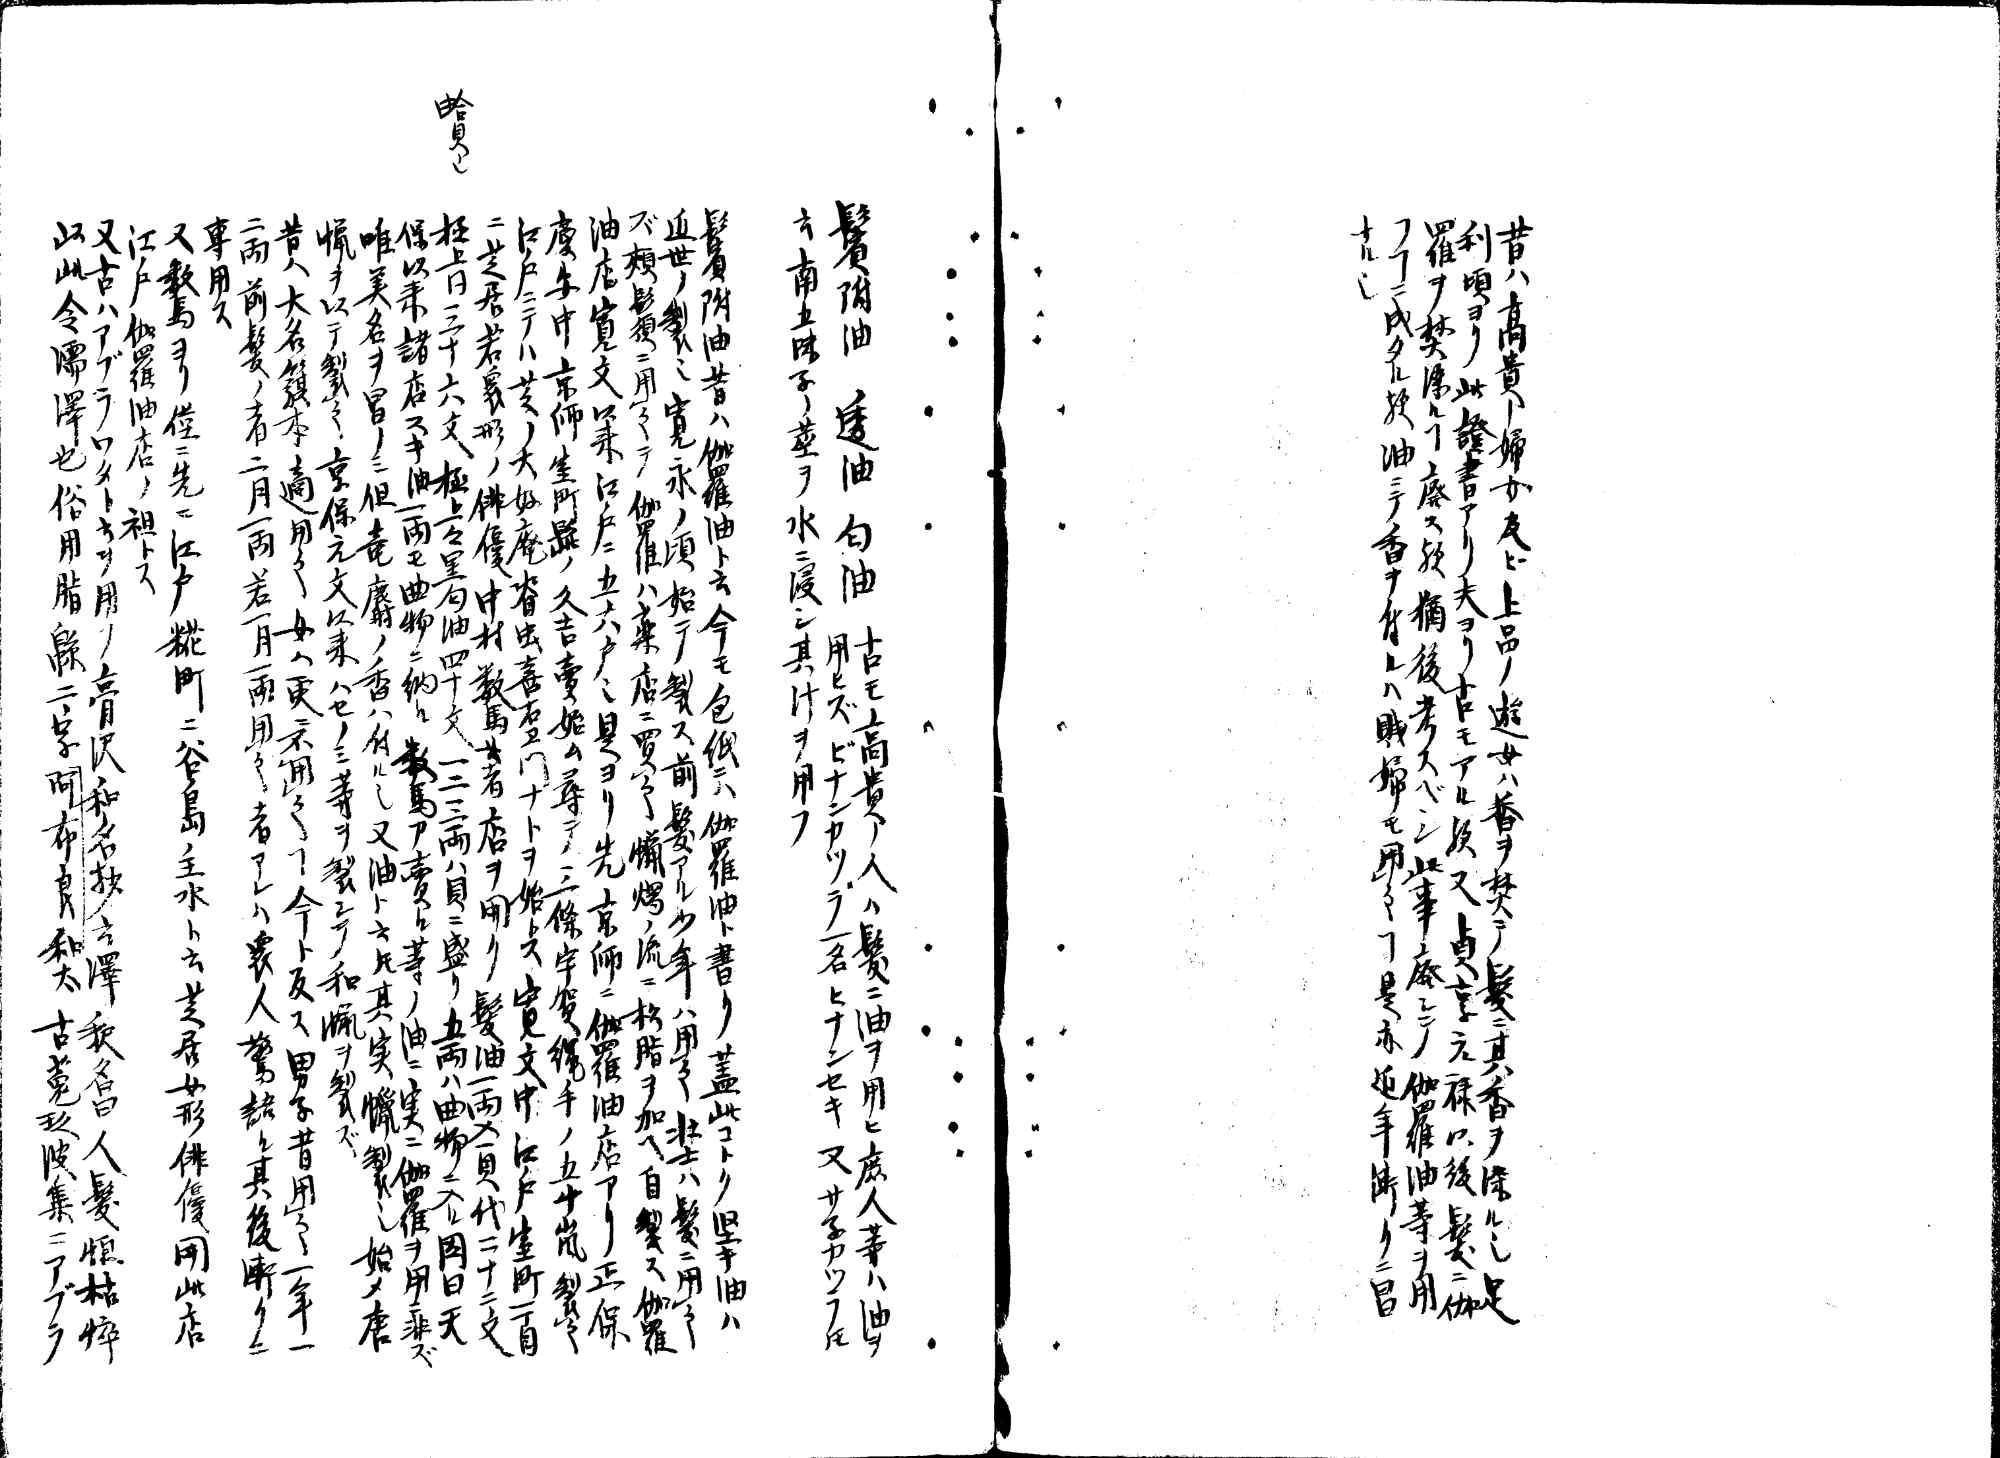 昔ハ高貴ノ婦女及ビ上品ノ遊女ハ香ヲ焚テ髪ニ其香ヲ染ルヿ足
利頃ヨリ此證書アリ夫ヨリ古モアル歟又貞享元禄以後髪ニ伽
羅ヲ焚染ルヿ廃ス歟猶後考スベシ此事廃シテ伽羅油等ヲ用
フヿニ成タル歟油ニテ香ヲ付ルハ賎婦モ用フヿ是亦近年漸クニ昌
ナル也
鬢附油 透油 匂油 古モ高貴ノ人ハ髪ニ油ヲ用ヒ庶人等ハ油ヲ
用ヒズビナンカツラ一名ビナンセキ又サ子カツラ氏
云南五味子ノ茎ヲ水ニ浸シ其汁ヲ用フ
鬢附油昔ハ伽羅油ト云今モ包紙ニハ伽羅油ト書リ蓋此コトク堅キ油ハ
近世ノ製也寛永ノ頃始テ製ス前髪アル少年ハ用ヒズ壮士ハ髪ニ用ヒ
ズ頬髭鬚ニ用フテ伽羅ハ薬店ニ買ヒ蝋燭ノ流ニ松脂ヲ加ヘ自製ス伽羅
油店寛文以来江戸ニ五六戸也是ヨリ先京師ニ伽羅油店アリ正保
慶安中京師室町髭ノ久吉売始ム尋テ三條宇賀縄手ノ五十嵐製ス
江戸ニテハ芝ノ大好庵沓虫喜右エ門ナトヲ始トス寛文中江戸室町一丁目
ニ芝居若衆形ノ俳優中村数馬ナル者店ヲ開ク髪油一両入一貝代二十二文
極上白三十六文極上々黒匂油四十文一二三両ハ貝ニ盛リ五両ハ曲物ニ入ル図曰天
保以来諸店スキ油一両モ曲物ニ納ル数馬ア売ル等ノ油ニ実ニ伽羅ヲ用ニ非ズ
唯美名ヲ冒ノミ但竜麝ノ香ハ付ル也又油ト云氏其実蝋製也始メ唐
蝋ヲ以テ製ス京保元文以来ハゼノミ等ヲ製シテ和蝋ヲ製ズ
昔ハ大名籏本適用フ女ハ更ニ不用ヒヿ今ト反ス男子昔用フ一年一
二両前髪ノ者二月一両若一月一両用フ者アレハ衆人驚語ル其後漸クニ
専用ス
又数馬ヨリ僅ニ先ニ江戸糀町ニ谷島主水ト云芝居女形俳優開此店
江戸伽羅油店ノ祖トス
又古ハアブラワタト云ヲ用フ膏沢和名抄云澤釈名曰人髪恒枯悴
以此令濡澤也俗用脂緜二字阿布良和太 古菟玖波集ニアブラ